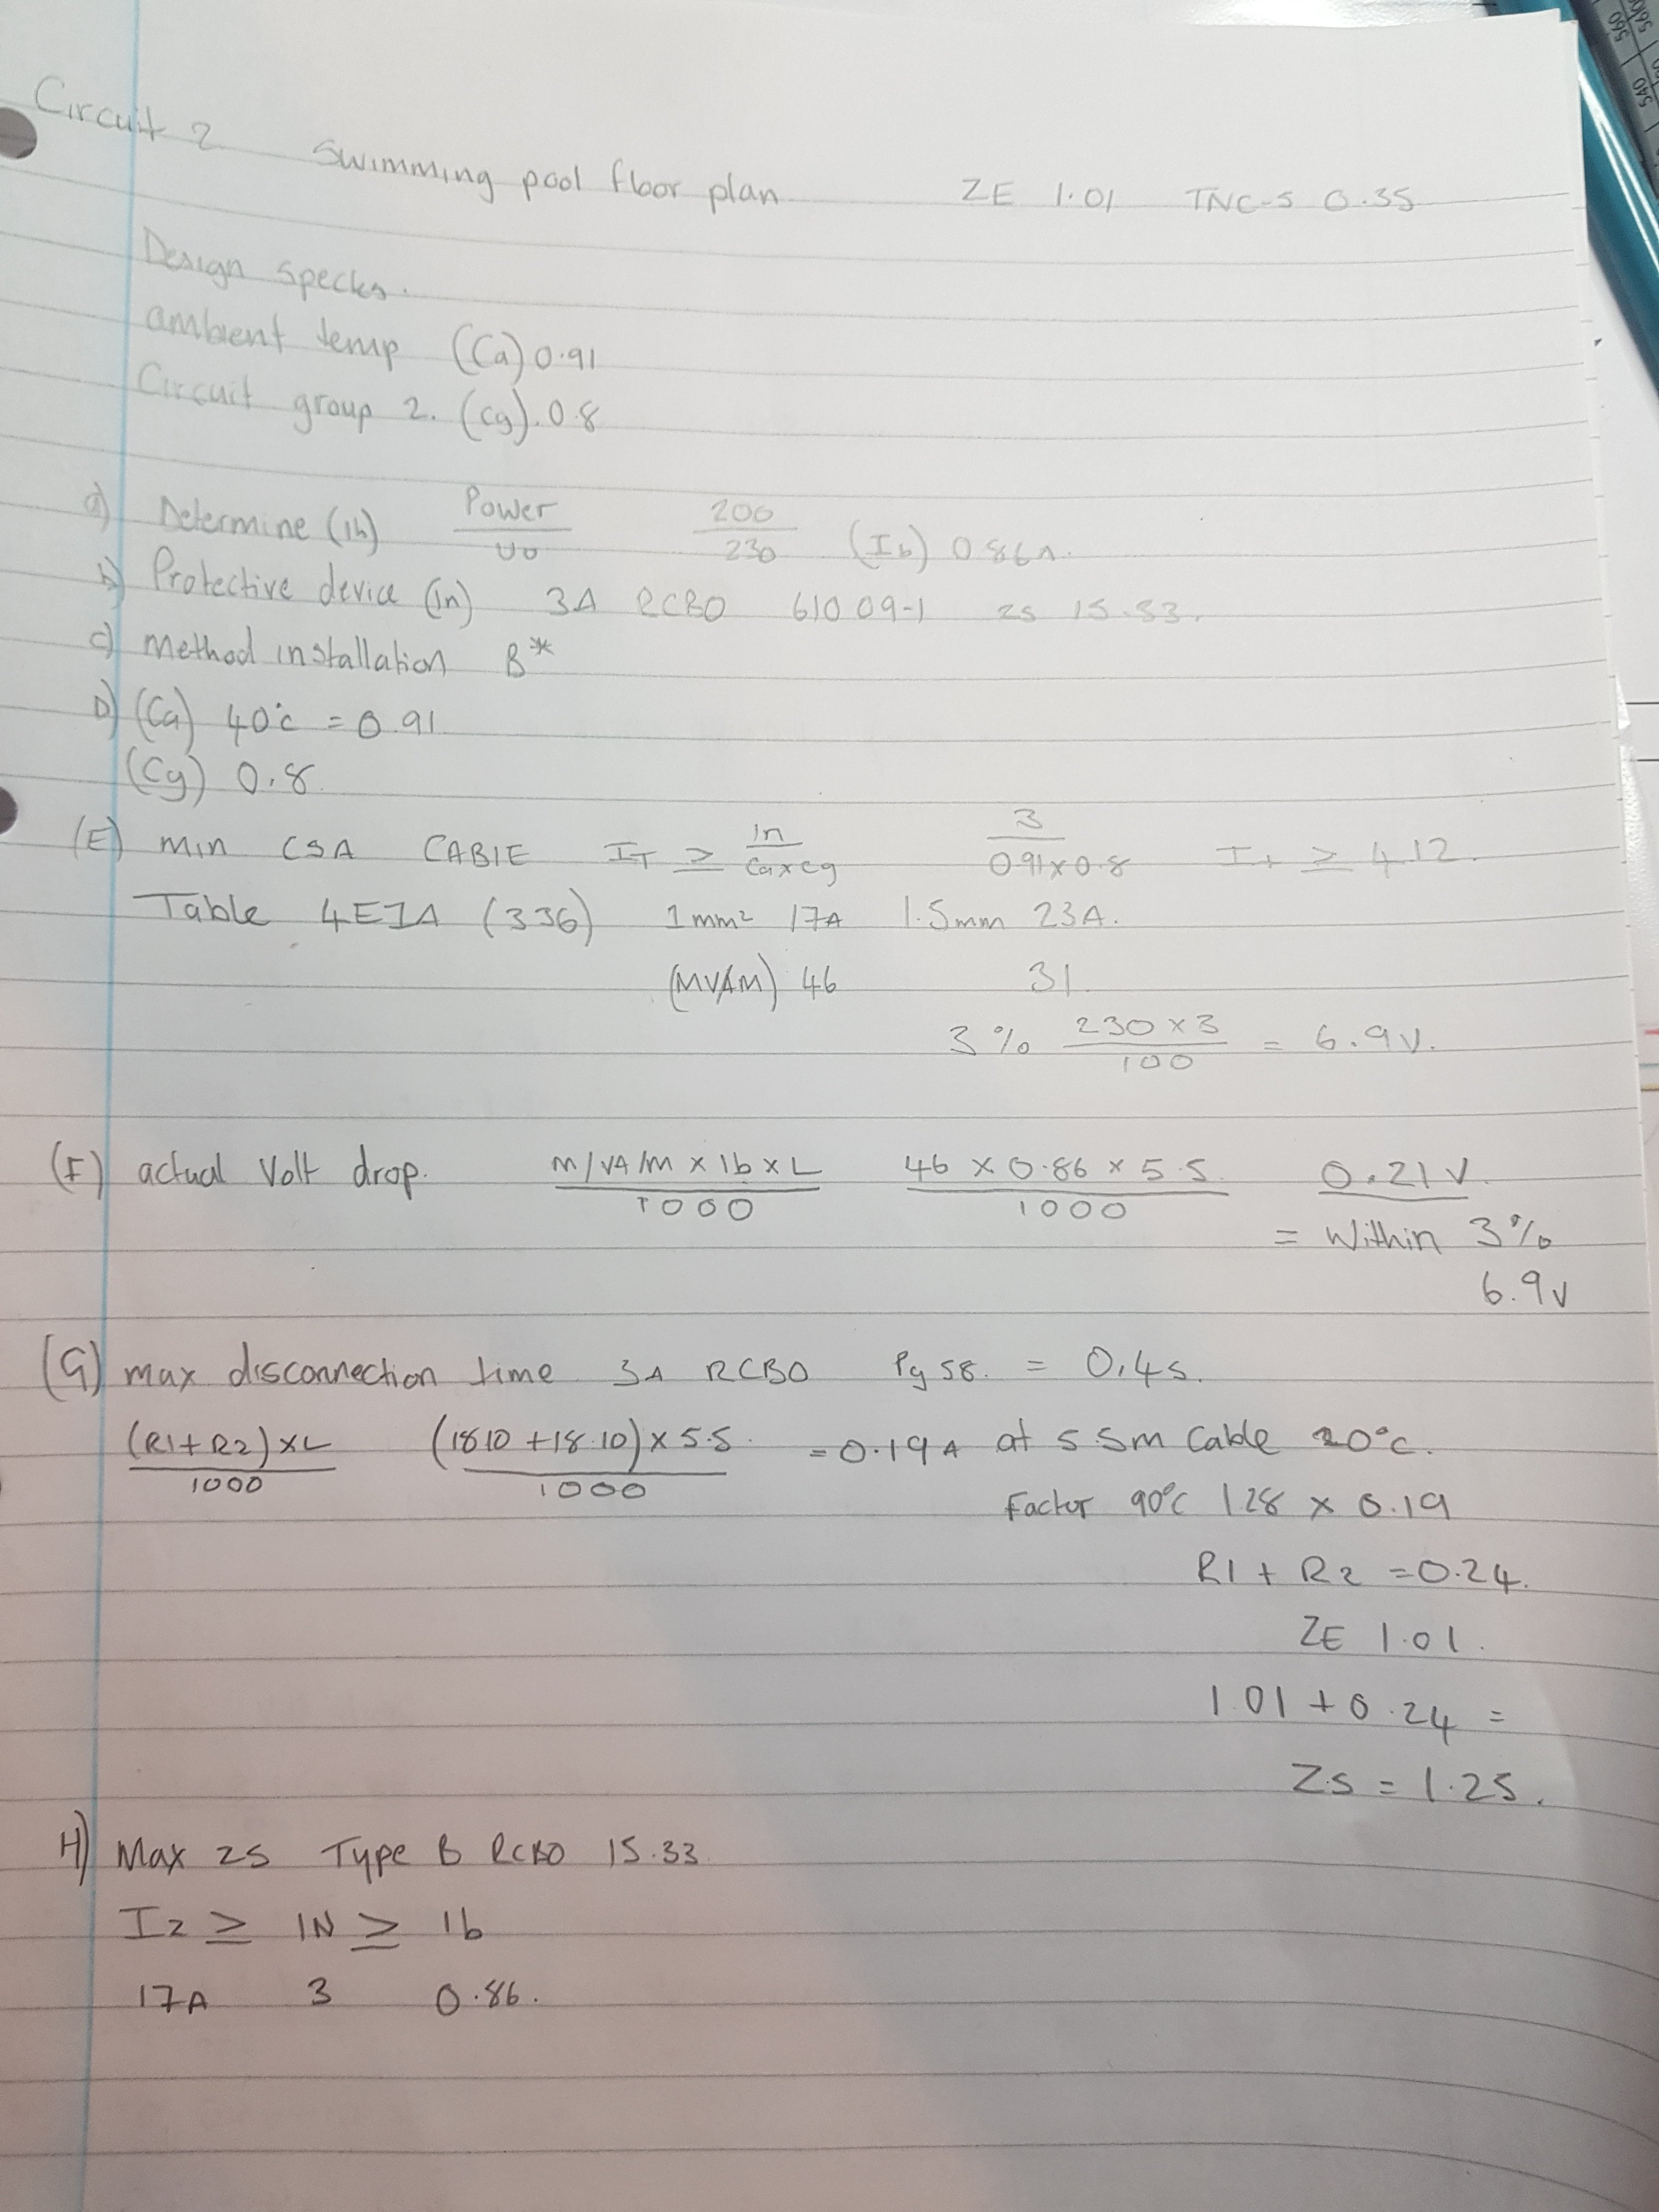 Circuit 2 Swimming pool floor plan ZE 1.01 TNC-S 0.35
Design specks.
ambient temp (Ca) 0.91
Circuit group 2. (cg). 0.8
a) Determine (Ib) Power / Uo 200 / 230 (Ib) 0.86A.
b) Protective device (In) 3A RCBO 61009-1 zs 15.33.
c) Method installation B*
D) (Ca) 40°c = 0.91
(Cg) 0.8.
(E) min CSA CABLE IT ≥ In / Caxcg 3 / 0.91x0.8 It ≥ 4.12.
Table 4E1A (336) 1mm² 17A 1.5mm 23A.
(MVAM) 46 31.
3% 230 x 3 / 100 = 6.9V.
(F) actual Volt drop. M/VA/M x Ib x L / 1000 46 x 0.86 x 5.5. / 1000 0.21V.
= Within 3%
6.9v
(G) max disconnection time 3A RCBO Pg 58. = 0.4s.
(R1+R2) x L / 1000 (18.10 + 18.10) x 5.5. / 1000 = 0.19A at 5.5m Cable 20°c.
Factor 90°C 1.28 x 0.19
R1 + R2 = 0.24.
ZE 1.01.
1.01 + 0.24 =
ZS = 1.25.
H) Max ZS Type B RCBO 15.33
Iz ≥ IN ≥ Ib
17A 3 0.86.